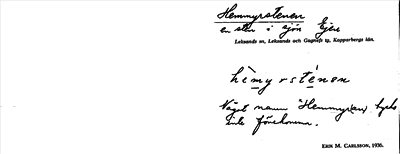 Hemmyrstenen
en sten i sjön Ejen
Leksands sn, Leksands och Gagnefs tg, Kopparbergs län.
hèmyrsténen
Något namn "Hemmyr(en) tycks
inte förekomma.
ERIK M. CARLSSON, 1936.